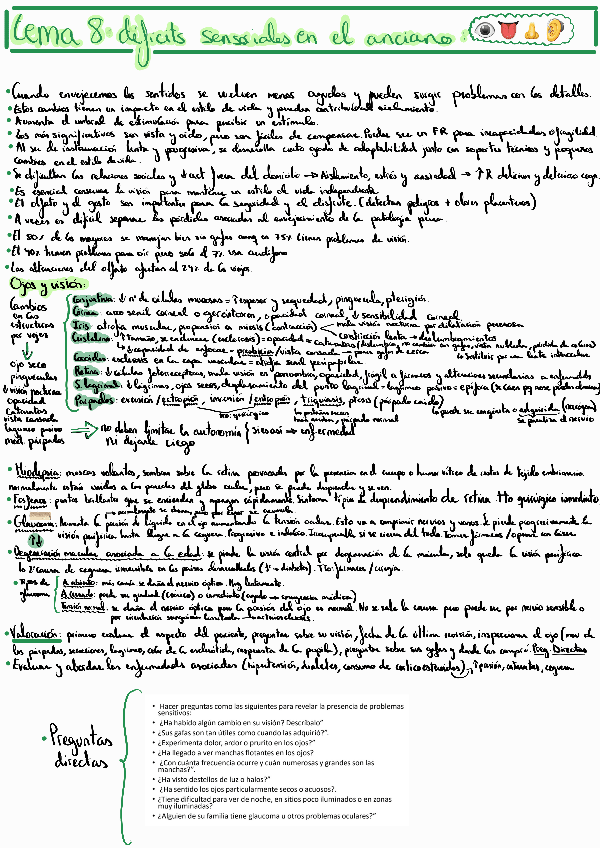 tema 8: déficits sensoriales en el anciano:
• Cuando envejecemos los sentidos se vuelven menos agudos y pueden surgir problemas con los detalles.
• Estos cambios tienen un impacto en el estilo de vida y pueden contribuir al aislamiento.
• Aumenta el umbral de estimulación para percibir un estímulo.
• Los más significativos son vista y oído, pero son fáciles de compensar. Puede ser un FR para incapacidades o fragilidad
• Al ser de instauración lenta y progresiva, se desarrolla cierto grado de adaptabilidad junto con soportes técnicos y pequeños
cambios en el estilo de vida.
• Se dificultan las relaciones sociales y ↓ act fuera del domicilio → Aislamiento, estrés y ansiedad → ↑R delirium y deterioro cog.
• Es esencial conservar la visión para mantener un estilo de vida independiente
• El olfato y el gusto son importantes para la seguridad y el disfrute. (detectan peligros + olores placenteros)
• A veces es difícil separar las pérdidas asociadas al envejecimiento de la patología pura
• El 80% de los mayores se manejan bien sus gafas aunq un 75% tienen problemas de visión.
• El 40% tienen problemas para oír pero solo el 7% usa audífono
• Las alteraciones del olfato afectan al 24% de los viejos.
Ojos y visión:
Cambios
en las
estructuras
por vejez
Conjuntiva: ↓ nº de células mucosas = ↑ espesor y sequedad, pinguecula, pterigión.
Córnea: arco senil corneal o gerontoxon, opacidad corneal, ↓ sensibilidad corneal
Iris: atrofia muscular, propensión a miosis (contracción) → mala visión nocturna por dilatación perezosa
Cristalino: ↑ Tamaño, se endurece (esclerosis) = opacidad = cataratas
constricción lenta → deslumbramientos
↓ capacidad de enfoque = presbicia / vista cansada → poner gafas de cerca.
→ Sustituir por un lente intraocular
Retina: ↓ células fotorreceptoras, mala visión en penumbra, opacidad, frágil a fármacos y alteraciones secundarias a enfermedades
S. lagrimal: ↓ lágrimas, ojos secos, desplazamiento del punto lagrimal = lagrimeo pasivo = epífora
Párpados: eversión / ectropión, inversión / entropión, triquiasis, ptosis (párpado caído)
tto: quirúrgico
puede ser congénita o adquirida
ojo seco
pinguecula
↓ visión nocturna
opacidad
Cataratas
vista cansada
lagrimeo pasivo
mov. párpados
⇒ No deben limitar la autonomía
Ni dejarte ciego
Si eso si → enfermedad
• Miodesopsia: moscas volantes, sombras sobre la retina provocadas por la flotación en el cuerpo o humor vítreo de restos de tejido embrionario.
normalmente están unidos a las paredes del globo ocular, pero se puede desprender y se ven.
• Fosfenos: puntos brillantes que se encienden y apagan rápidamente. Síntoma típico de desprendimiento de retina. Tto quirúrgico inmediato
• Glaucoma: Aumenta la presión de líquido en el ojo aumentando la tensión ocular. Esto va a comprimir nervios y venas. Se pierde progresivamente la
visión periférica hasta llegar a la ceguera. Progresivo e indoloro. Irrecuperable si se cierra del todo. Tomar fármacos / operar con láser
• Degeneración macular asociada a la edad: se pierde la visión central por degeneración de la mácula, solo queda la visión periférica
la 2ª causa de ceguera irreversible en los países desarrollados (1ª → diabetes). Tto: fármacos / cirugía.
• Tipos de
glaucoma
A. abierto: más común se daña el nervio óptico. Muy lentamente.
A. cerrado: puede ser gradual (crónico) o inmediato (agudo → emergencia médica)
Tensión normal: se daña el nervio óptico pero la presión del ojo es normal. No se sabe la causa pero puede ser por nervio sensible o
por circulación sanguínea limitada
• Valoración: primero evaluar el aspecto del paciente, preguntas sobre su visión, fecha de la última revisión, inspeccionar el ojo (mov de
los párpados, secreciones, lágrimas, color de la esclerótica, respuesta de la pupila), preguntar sobre sus gafas y donde las compró. Preg. Directas
• Evaluar y abordar las enfermedades asociadas (hipertensión, diabetes, consumo de corticoesteroides), ↑ presión, cataratas, ceguera
• Preguntas
directas
• Hacer preguntas como las siguientes para revelar la presencia de problemas
sensitivos:
• ¿Ha habido algún cambio en su visión? Descríbalo"
• ¿Sus gafas son tan útiles como cuando las adquirió?".
• ¿Experimenta dolor, ardor o prurito en los ojos?"
• ¿Ha llegado a ver manchas flotantes en los ojos?
• ¿Con cuánta frecuencia ocurre y cuán numerosas y grandes son las
manchas?".
• ¿Ha visto destellos de luz o halos?"
• ¿Ha sentido los ojos particularmente secos o acuosos?.
• ¿Tiene dificultad para ver de noche, en sitios poco iluminados o en zonas
muy iluminadas?
• ¿Alguien de su familia tiene glaucoma u otros problemas oculares?"